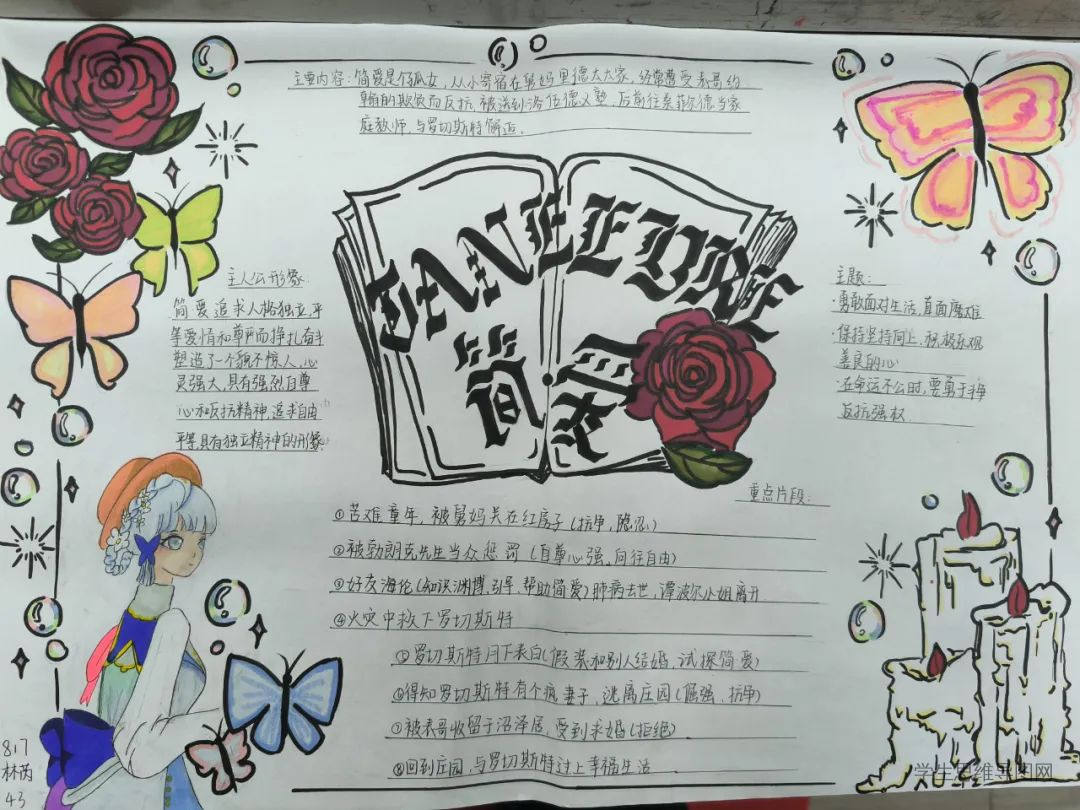 主要内容:简爱是个孤女,从小寄宿在舅妈里德太太家,经常遭受表哥约
翰的欺负而反抗,被送到洛伍德义塾,后前往桑菲尔德当家
庭教师,与罗切斯特邂逅.
JANE EYRE
简爱
主人公形象
简爱追求人格独立,平
等爱情和尊严而挣扎奋斗
塑造了一个貌不惊人,心
灵强大,具有强烈自尊
心和反抗精神,追求自由
平等,具有独立精神的形象
主题:
·勇敢面对生活,直面磨难
·保持坚持向上,积极乐观
善良的心
·在命运不公时,要勇于争
反抗强权
重点片段:
①苦难童年,被舅妈关在红房子(抗争,隐忍)
②被勃朗克先生当众惩罚(自尊心强,向往自由)
③好友海伦(知识渊博,引导、帮助简爱)肺病去世,谭波尔小姐离开
④火灾中救下罗切斯特
⑤罗切斯特月下表白(假装和别人结婚,试探简爱)
⑥得知罗切斯特有个疯妻子,逃离庄园(倔强、抗争)
⑦被表哥收留于沼泽居,受到求婚(拒绝)
⑧回到庄园,与罗切斯特过上幸福生活
817
林芮
43
学生思维导图网